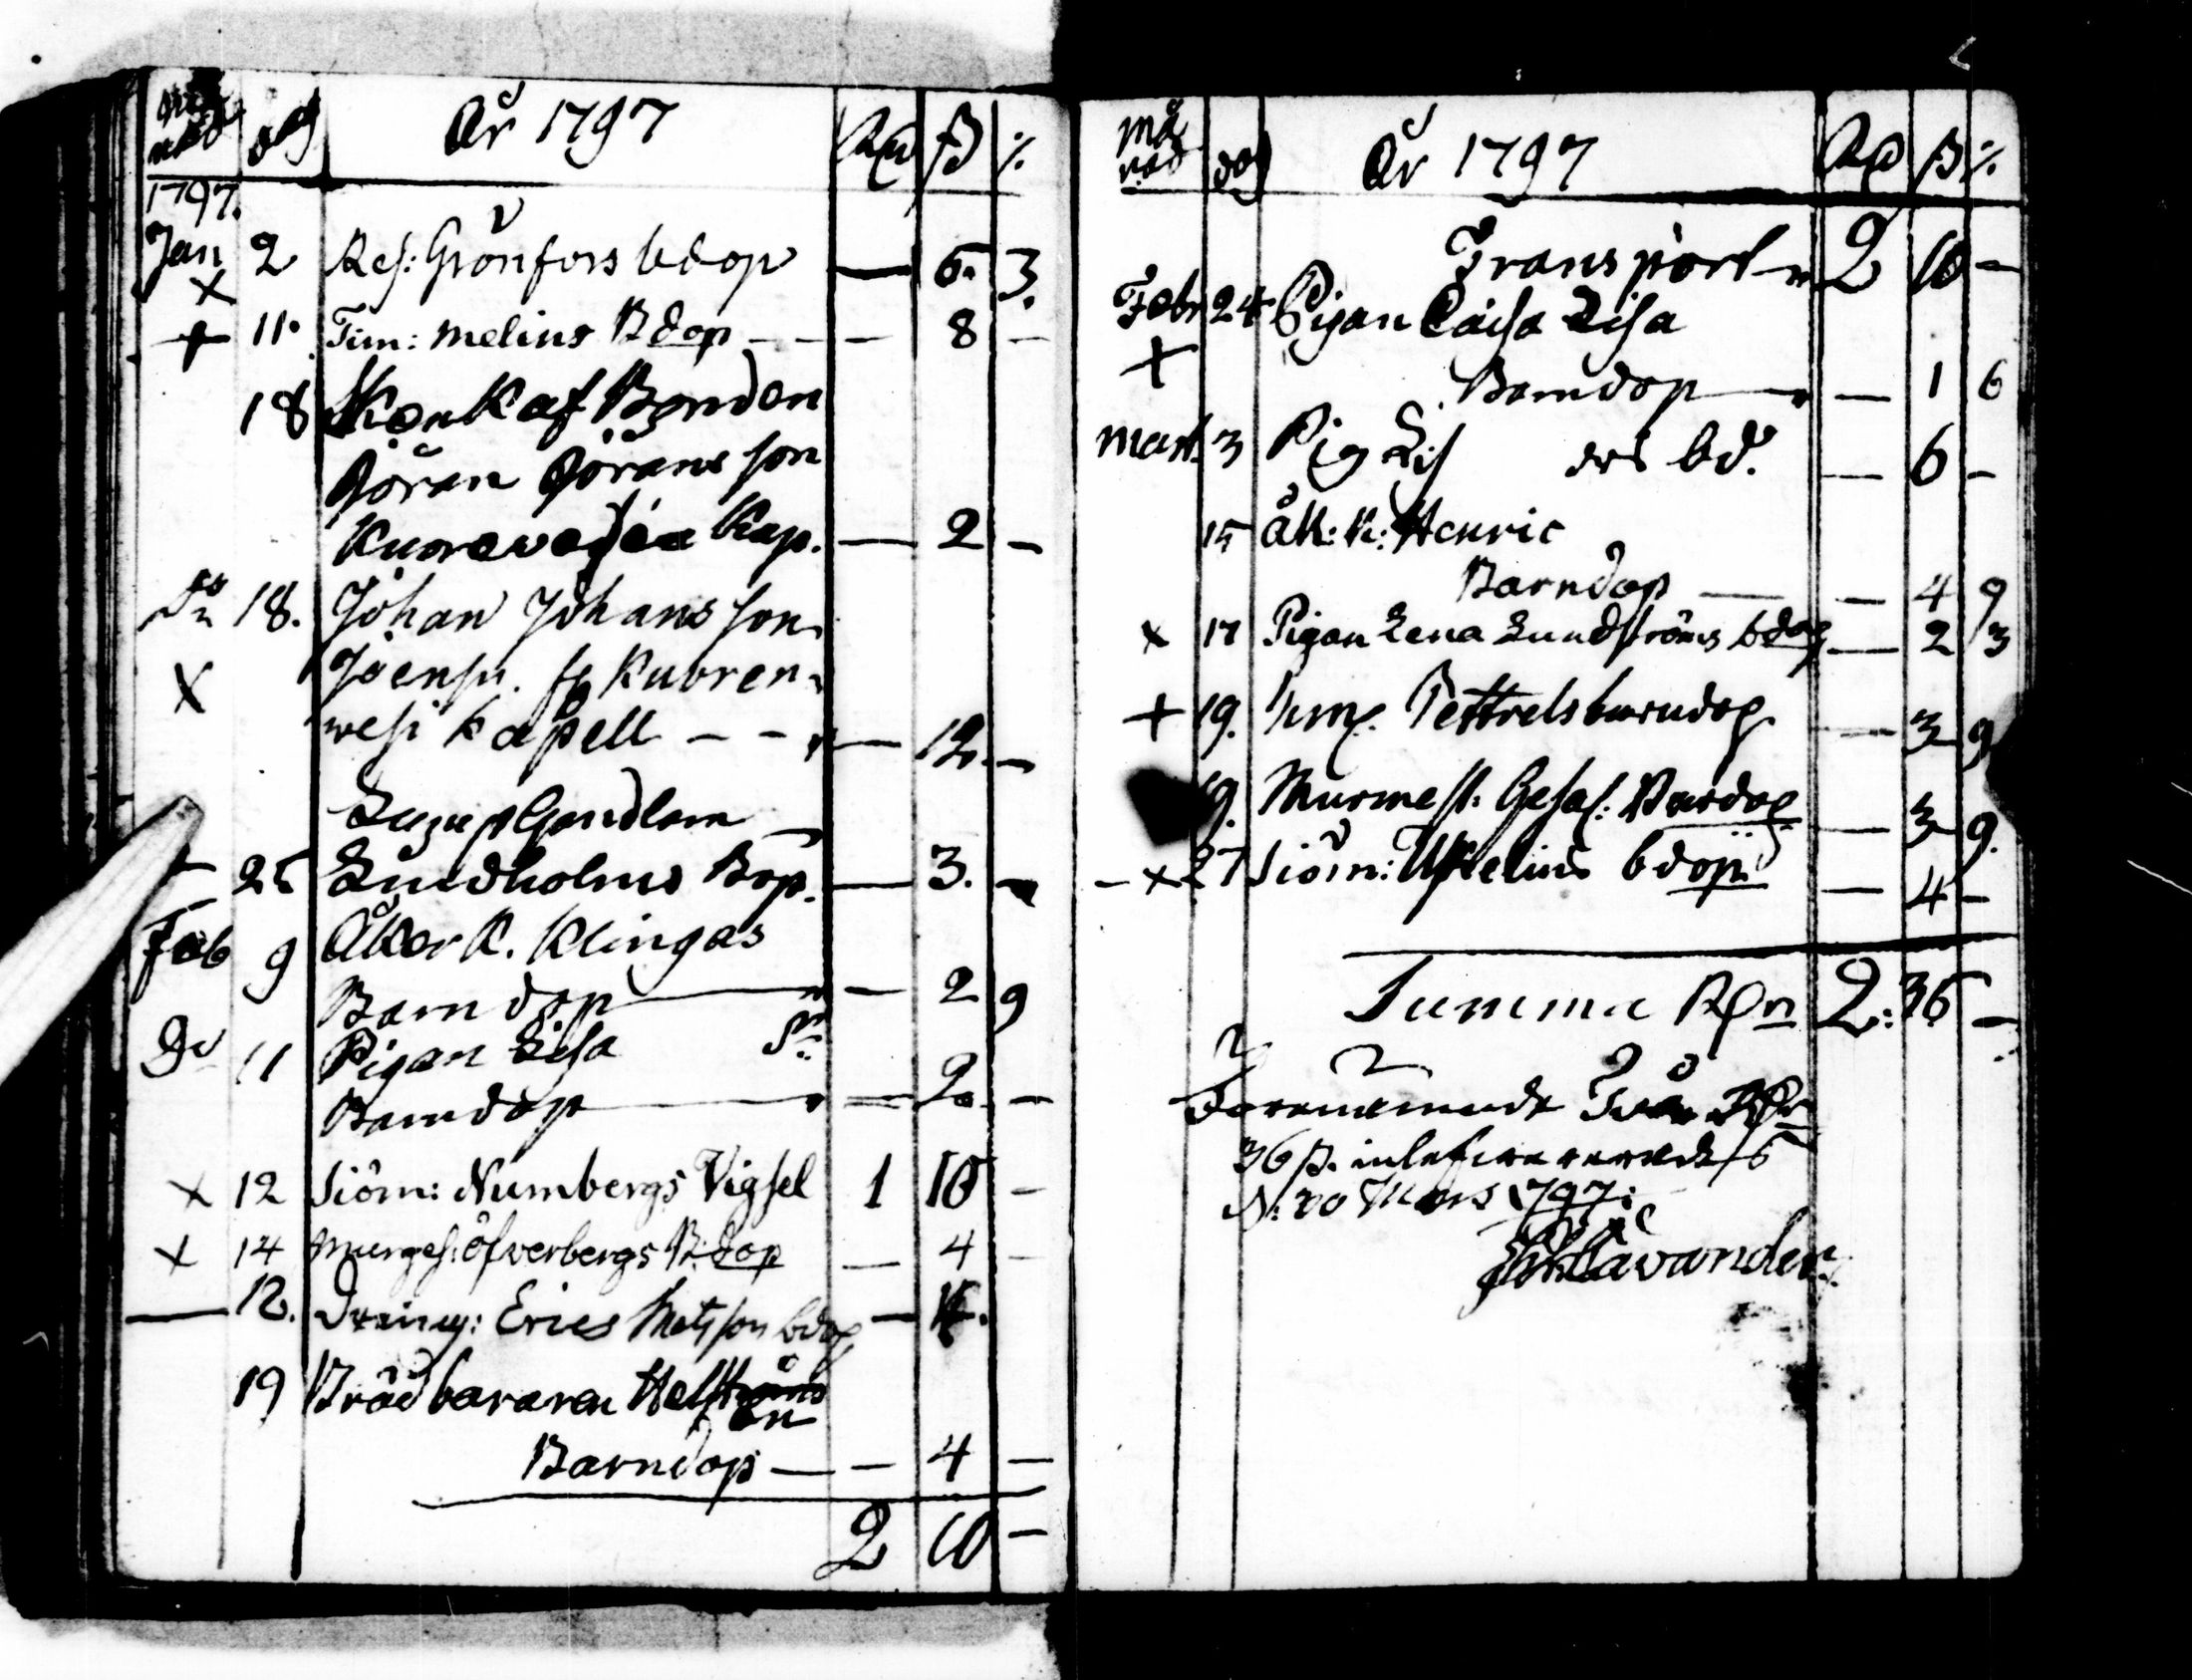 må
nad dag År 1797 Rd ß %
1797.
Jan 2 Ref: Grönfors bdop — 6. 3.
x
+ 11. Tim: Melins Bdop — — — 8 —
18 Skänk af Bonden
Göran Göransson
Kap. — 2 —
Do 18. Johan Johansson
x Joensu. fr Kuoren-
vesi kapell — — — 12. —
Lundholms Bop. — 3. —
Feb 9 Åker K. Klingas
Barndop — — 2 9
Do 11 Pigan Lisa
Barndop — — 2. —
x 12 Siöm: Numbergs Vigsel 1 10 —
x 14 Murges: Öfverbergs B:dop — 4 —
— 12. Erics Matsson bdop — 4.
19 Brädbararen
Barndop — — 4 —
2 10 —
må
nad dag År 1797 Rd ß %
Transport 2 10 —
Febr 24 Pigan Caisa Lisa
+ Barndop — — 1 6
Mart. 3 Pig Lis drs bd. — 6 —
15 Åk: K: Henric
Barndop — — 4 9
x 17 Pigan Lena Lundströms bdop — 2 3
+ 19. Pettrels barndop — 3 9
19. Murmest: Gesäl: Bardop — 3 9.
— x 27 Siöm: bdop — 4 —
Summa Rd 2: 36 —
Förenämnde Två Rdr
36 ß.
d. 20 Mars 1797:
Cavander